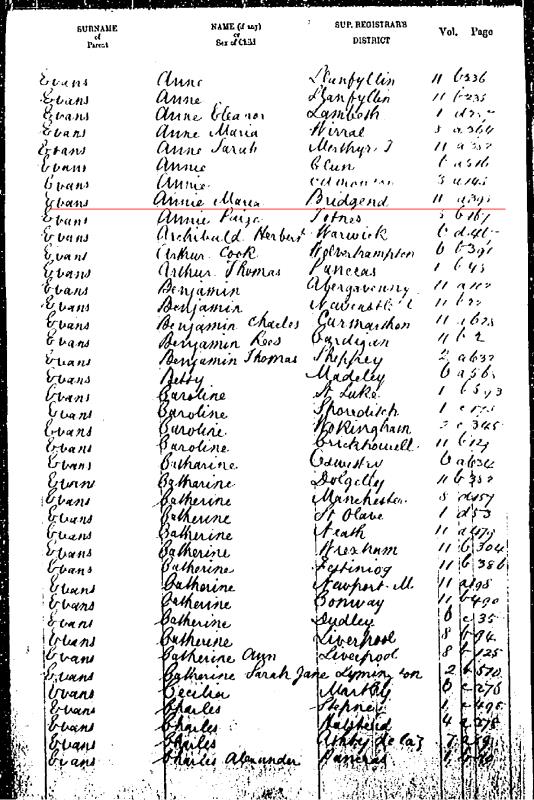 SURNAME of Parent NAME (if any) or Sex of Child SUP. REGISTRAR'S DISTRICT Vol. Page
Evans Anne Llanfyllin 11 b 236
Evans Anne Llanfyllin 11 b 235
Evans Anne Eleanor Lambeth 1 d
Evans Anne Maria Wirral 8 a 364
Evans Anne Sarah Merthyr T 11 a
Evans Annie Clun 6 a
Evans Annie 3 a
Evans Annie Maria Bridgend 11 a
Evans Annie Paige Totnes 5 b 167
Evans Archibald Herbert Warwick 6 d
Evans Arthur Cook Wolverhampton 6 b
Evans Arthur Thomas Pancras 1 b 45
Evans Benjamin Abergavenny 11 a
Evans Benjamin 11 b
Evans Benjamin Charles Carmarthen 11 a 623
Evans Benjamin Rees Cardigan 11 b 2
Evans Benjamin Thomas Sheppey 2 a 632
Evans Betsy Madeley 6 a
Evans Caroline St Luke 1 b 593
Evans Caroline Shoreditch 1 c
Evans Caroline Wokingham 2 c 345
Evans Caroline Crickhowell 11 b 124
Evans Catharine Oswestry 6 a 634
Evans Catharine Dolgelly 11 b 352
Evans Catherine Manchester 8 d 157
Evans Catherine St Olave 1 d 53
Evans Catherine Neath 11 a 479
Evans Catherine Wrexham 11 b 304
Evans Catherine Festiniog 11 b 386
Evans Catherine Newport M 11 a 198
Evans Catherine Conway 11 b 490
Evans Catherine Dudley 6 c 35
Evans Catherine Liverpool 8 b 94
Evans Catherine Ann Liverpool 8 b 125
Evans Catherine Sarah Jane Lymington 2 b 570
Evans Cecilia Martley 6 c 276
Evans Charles Stepney 1 c 495
Evans Charles 4 a 275
Evans Charles Ashby de la Z 7 a
Evans Charles Alexander Pancras 1 b